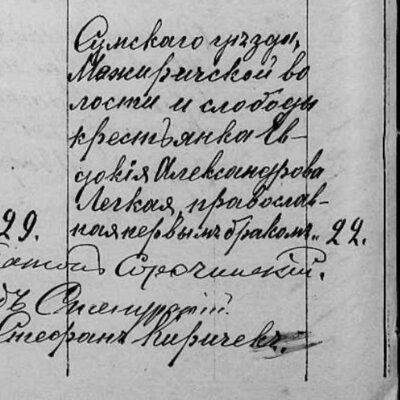 Сумскаго уѣзда,
Межиричской во
лости и слободы
крестьянка Ев-
докія Александрова
Легкая, православ-
29. ная первымъ бракомъ. 22.
Сорочинскій.
Стефанъ Киричекъ.